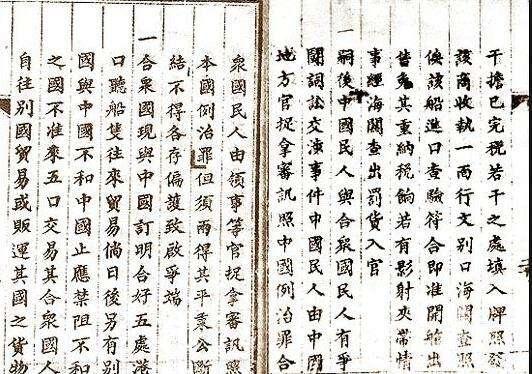 干擔已完稅若干之處填入牌照發
該商收執一面行文別口海關查照
俟該船進口查驗符合即准開艙出
皆免其重納稅餉若有影射夾帶情
事經海關查出罰貨入官
一嗣後中國民人與合衆國民人有爭
鬭詞訟交涉事件中國民人由中國
地方官捉拿審訊照中國例治罪合
衆國民人由領事等官捉拿審訊照
本國例治罪但須兩得其平秉公斷
結不得各存偏護致啟爭端
一合衆國現與中國訂明合好五處港
口聽船隻往來貿易倘日後另有別
國與中國不和中國止應禁阻不和
之國不准來五口交易其合衆國人
自往別國貿易或販運其國之貨物